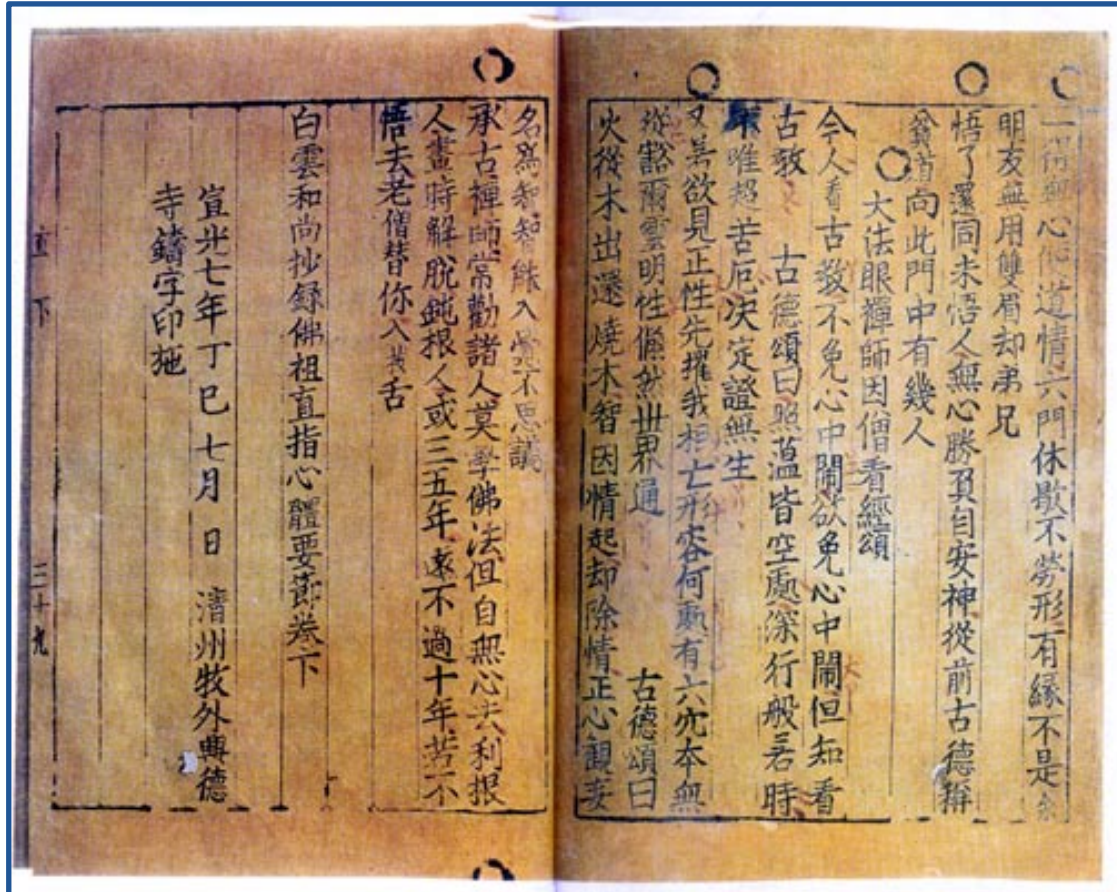 一得無心便道情六門休歇不勞形有緣不是余
明友無用雙眉却弟兄
悟了還同未悟人無心勝負自安神從前古德稱
貧道向此門中有幾人
大法眼禪師因僧看經頌
今人看古教不免心中鬧欲免心中鬧但知看
古教 古德頌曰照蘊皆空處深行般若時
唯超苦厄決定證無生
又善欲見正性先摧我相亡形容何處有六穴本無
從豁爾靈明性翛然世界通 古德頌曰
火從木出還燒木智因情起却除情正心觀妄
名爲智智能入覺不思議
承古禪師常勸諸人莫學佛法但自無心去利根
人晝時解脫鈍根人或三五年遠不過十年若不
悟去老僧替你入拔舌
白雲和尚抄録佛祖直指心體要節卷下
宣光七年丁巳七月 日 清州牧外興德
寺鑄字印施
直 下 三十九